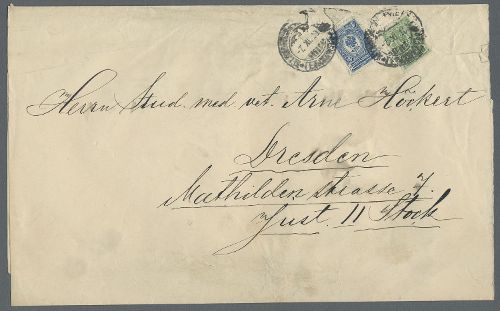 Herrn Stud. med. vet. Arne Höckert
Dresden
Mathilden strasse 7.
Just. II Stock